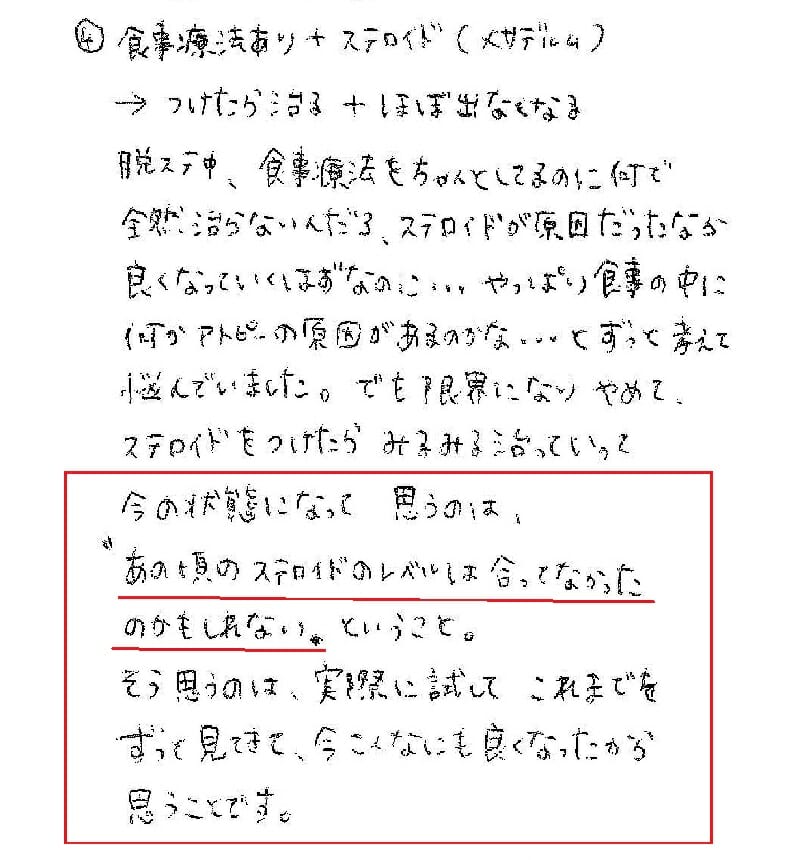 ④ 食事療法あり + ステロイド (メサデルム)
→ つけたら治る + ほぼ出なくなる
脱ステ中、食事療法をちゃんとしてるのに何で
全然治らないんだろ、ステロイドが原因だったなら
良くなっていくはずなのに... やっぱり食事の中に
何かアトピーの原因があるのかな...とずっと考えて
悩んでいました。でも限界になり やめて、
ステロイドをつけたら みるみる治っていって
今の状態になって 思うのは、
"あの頃のステロイドのレベルは合ってなかった
のかもしれない〟ということ。
そう思うのは、実際に試して これまでを
ずっと見てきて、今こんなにも良くなったから
思うことです。